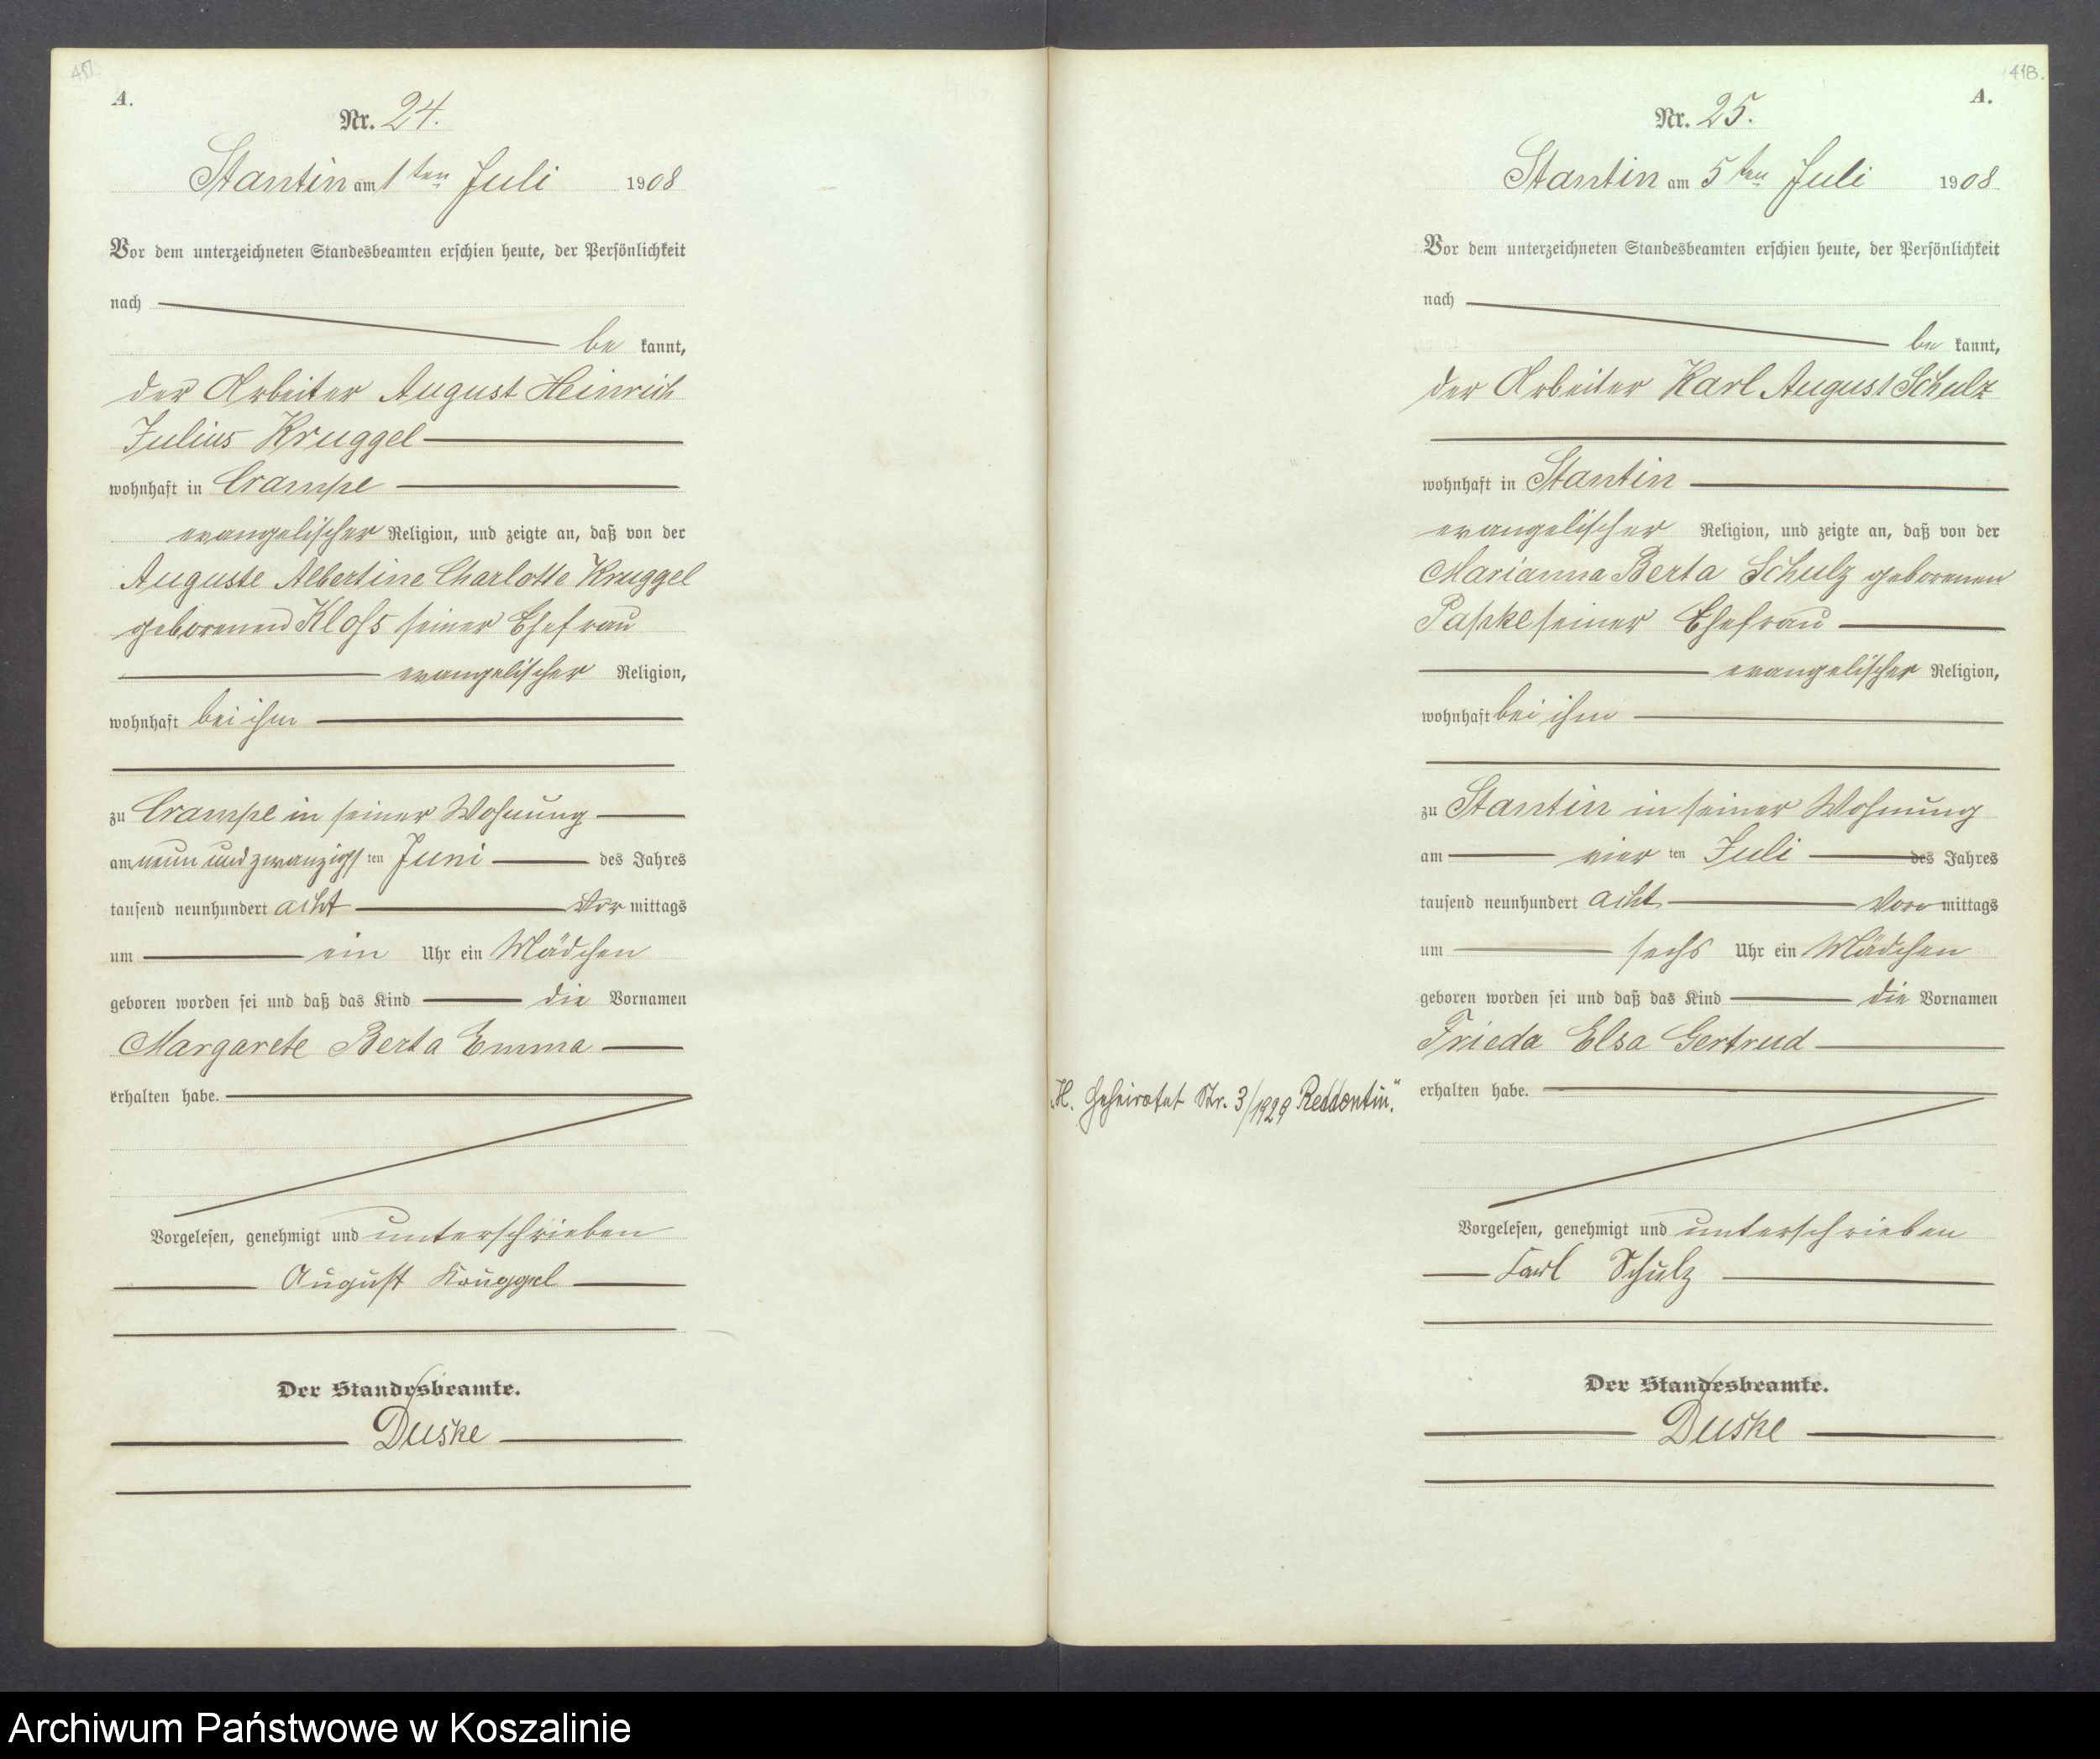 A.
Nr. 24.
Stantin am 1ten Juli 1908
Vor dem unterzeichneten Standesbeamten erschien heute, der Persönlichkeit
nach
be kannt,
der Arbeiter August Heinrich
Julius Kruggel
wohnhaft in Crampe
evangelischer Religion, und zeigte an, daß von der
Auguste Albertine Charlotte Kruggel
geborenen Kloss seiner Ehefrau
evangelischer Religion,
wohnhaft bei ihm
zu Crampe in seiner Wohnung
am neun und zwanzigs ten Juni des Jahres
tausend neunhundert acht Vor mittags
um ein Uhr ein Mädchen
geboren worden sei und daß das Kind die Vornamen
Margarete Berta Emma
erhalten habe.
Vorgelesen, genehmigt und unterschrieben
August Kruggel
Der Standesbeamte.
Duske
418.
A.
Nr. 25.
Stantin am 5ten Juli 1908
Vor dem unterzeichneten Standesbeamten erschien heute, der Persönlichkeit
nach
be kannt,
der Arbeiter Karl August Schulz
wohnhaft in Stantin
evangelischer Religion, und zeigte an, daß von der
Marianna Berta Schulz geborenen
Papke seiner Ehefrau
evangelischer Religion,
wohnhaft bei ihm
zu Stantin in seiner Wohnung
am vier ten Juli des Jahres
tausend neunhundert acht Vor mittags
um sechs Uhr ein Mädchen
geboren worden sei und daß das Kind die Vornamen
Frieda Elsa Gertrud
H. Geheiratet Nr. 3/1929 Reddentin."
erhalten habe.
Vorgelesen, genehmigt und unterschrieben
Karl Schulz
Der Standesbeamte.
Duske
Archiwum Państwowe w Koszalinie